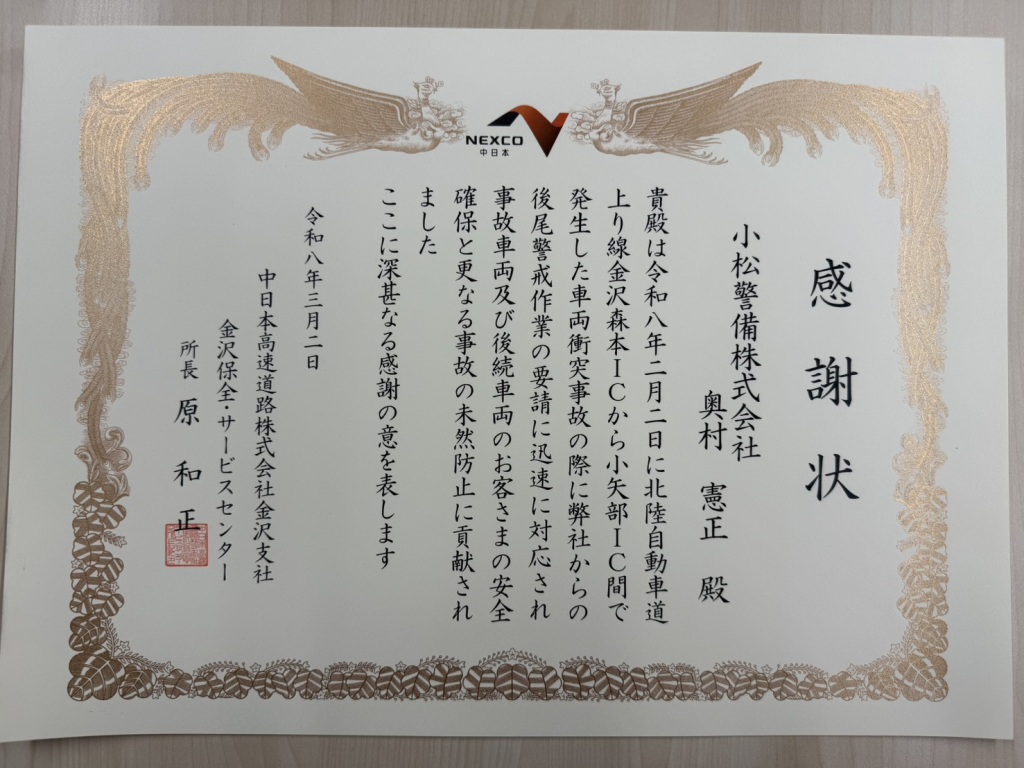 NEXCO
中日本
感謝状
小松警備株式会社
奥村 憲正 殿
貴殿は令和八年二月二日に北陸自動車道
上り線金沢森本ICから小矢部IC間で
発生した車両衝突事故の際に弊社からの
後尾警戒作業の要請に迅速に対応され
事故車両及び後続車両のお客さまの安全
確保と更なる事故の未然防止に貢献され
ました
ここに深甚なる感謝の意を表します
令和八年三月二日
中日本高速道路株式会社金沢支社
金沢保全・サービスセンター
所長 原 和正